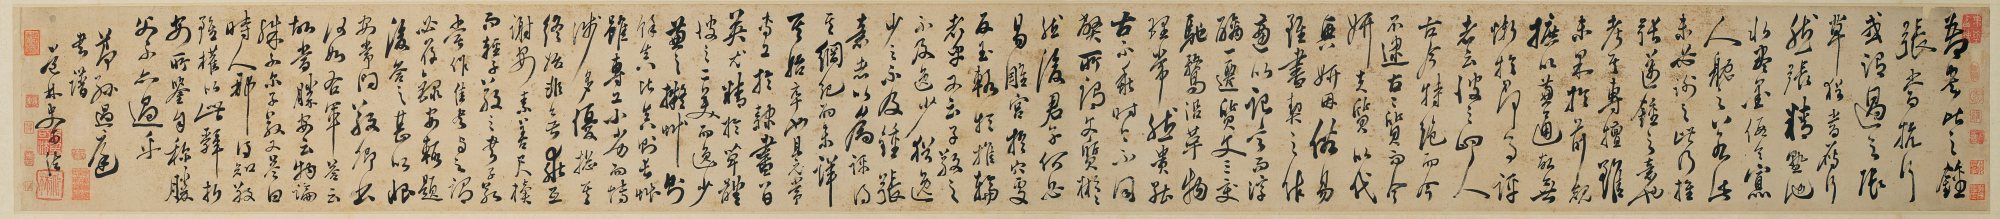 吾書比之鍾
張當抗行
或謂過之張
草猶當雁行
然張精熟池
水盡墨假令寡
人耽之若此
未必謝之此乃推
張邁鍾之意也
考其專擅雖
未果於前規
摭以兼通故無
慚於即事評
者云彼之四賢
古今特絕而今
不逮古古質而今
妍夫質以代
興妍因俗易
雖書契之作
適以記言而淳
醨一遷質文三變
馳騖沿革物
理常然貴能
古不乖時今不同
弊所謂文質彬
然後君子何必
易雕宮於穴處
反玉輅於椎輪
者乎又云子敬之
不及逸少猶逸
少之不及鍾張
意者以為評得
其綱紀而未詳
其始卒也且元常
專工於隸書伯
英尤精於草體
彼之二美而逸少
兼之擬草則
餘真比真則長草
雖專工小劣而博
涉多優總其
終始匪無乖互
謝安素善尺牘
而輕子敬之書子敬
嘗作佳書與之謂
必存錄安輒題
後答之甚以為恨
安嘗問敬卿書
何如右軍答云
故當勝安云物論
殊不爾子敬又答曰
時人那得知敬
雖權以此辭折
安所鑒自稱勝
父不亦過乎
節孫過庭
書譜